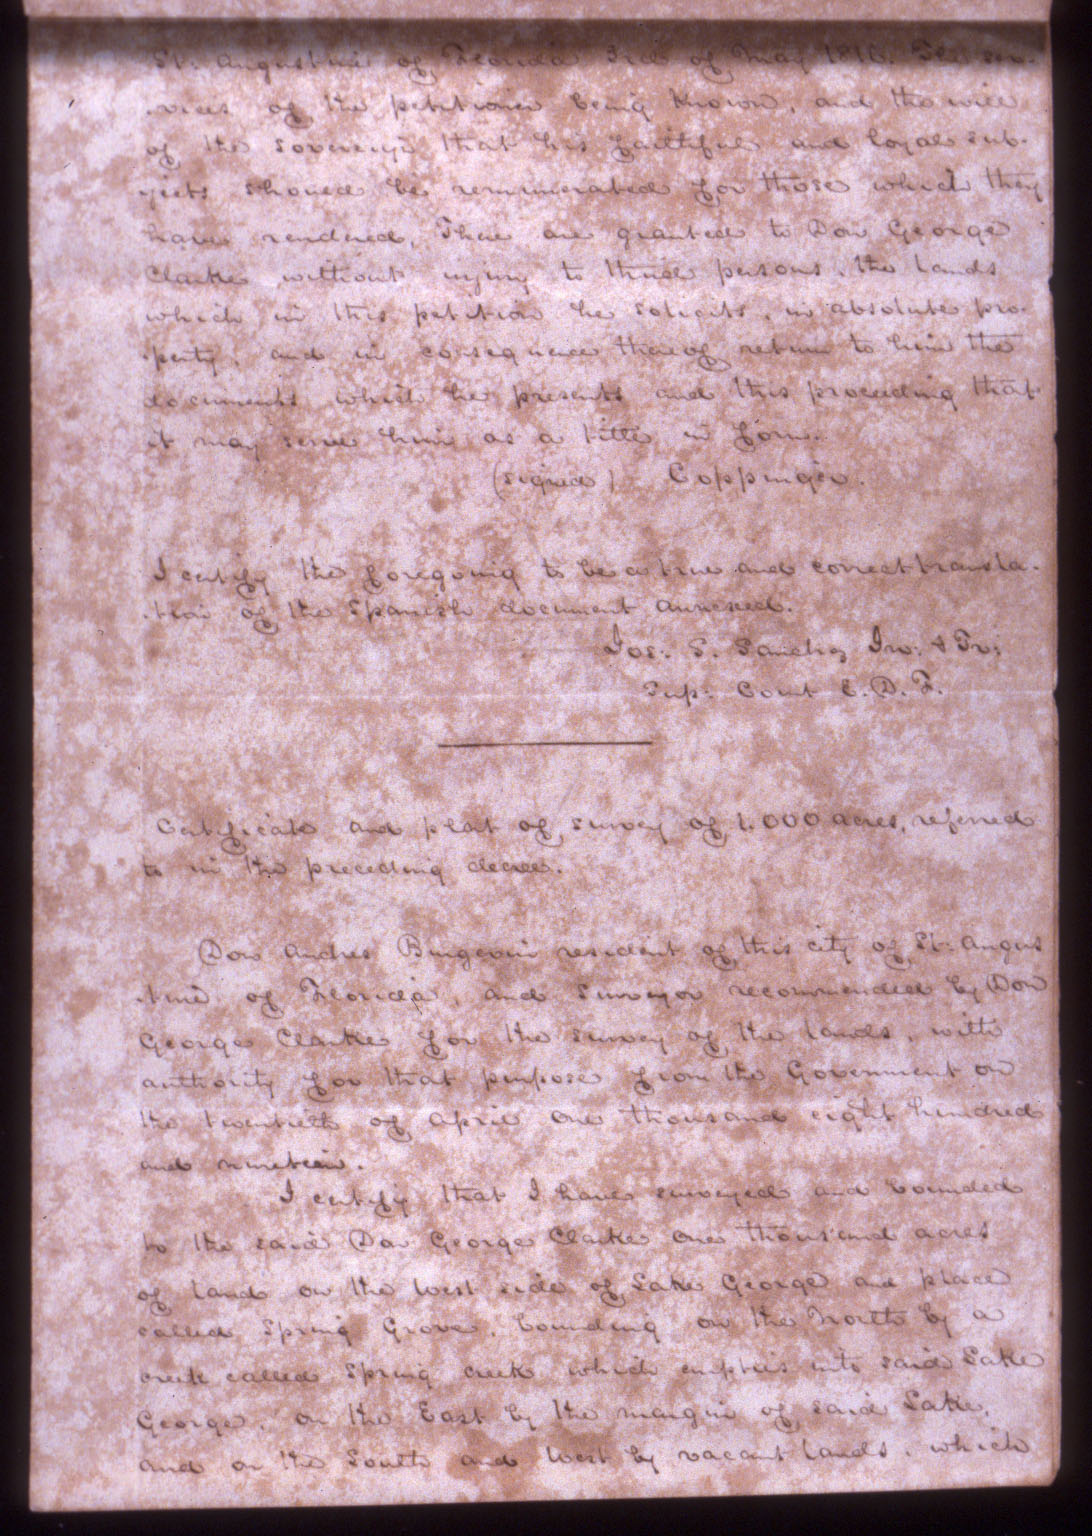 St: Augustine of Florida 3rd of May 1816. The ser-
-vices of the petitioner being known, and the will
of the sovereign that his faithful and loyal sub-
jects should be remunerated for those which they
have rendered, There are granted to Don George
Clarke without injury to third persons, the lands
which in this petition he solicits, in absolute pro-
-perty, and in consequence thereof return to him the
documents which he presents and this proceeding that
it may serve him as a title in form.
(signed) Coppinger.
I certify the foregoing to be a true and correct transla-
-tion of the Spanish document annexed.
Jos: S. Sanchez Ir: & Tr:
Sup: Court E. D. F.
Certificate and plat of survey of 1.000 acres, referred
to in the preceding decree.
Don Andres Burgevin resident of this city of St: Augus
-tine of Florida, and surveyor recommended by Don
George Clarke for the survey of the lands, with
authority for that purpose from the Government on
the twentieth of April one thousand eight hundred
and nineteen.
I certify that I have surveyed and bounded
to the said Don George Clarke one thousand acres
of land on the West side of Lake George and place
called Spring Grove, bounding on the North by a
creek called Spring creek which empties into said Lake
George, on the East by the margin of said Lake,
and on the South and West by vacant lands, which